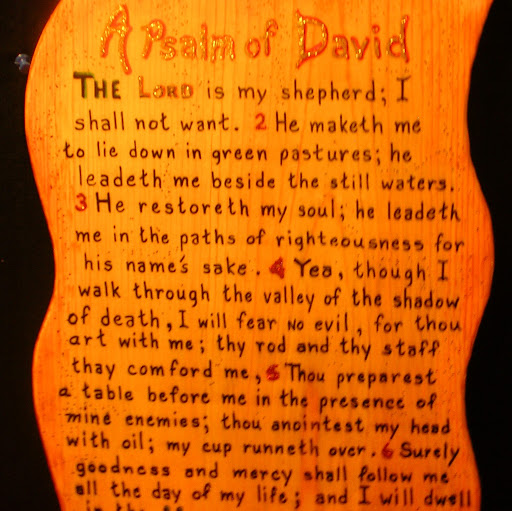 A Psalm of David
THE LORD is my shepherd; I
shall not want. 2 He maketh me
to lie down in green pastures; he
leadeth me beside the still waters.
3 He restoreth my soul; he leadeth
me in the paths of righteousness for
his name's sake. 4 Yea, though I
walk through the valley of the shadow
of death, I will fear NO evil, for thou
art with me; thy rod and thy staff
thay comford me, 5 Thou preparest
a table before me in the presence of
mine enemies; thou anointest my head
with oil; my cup runneth over. 6 Surely
goodness and mercy shall follow me
all the day of my life; and I will dwell
in the